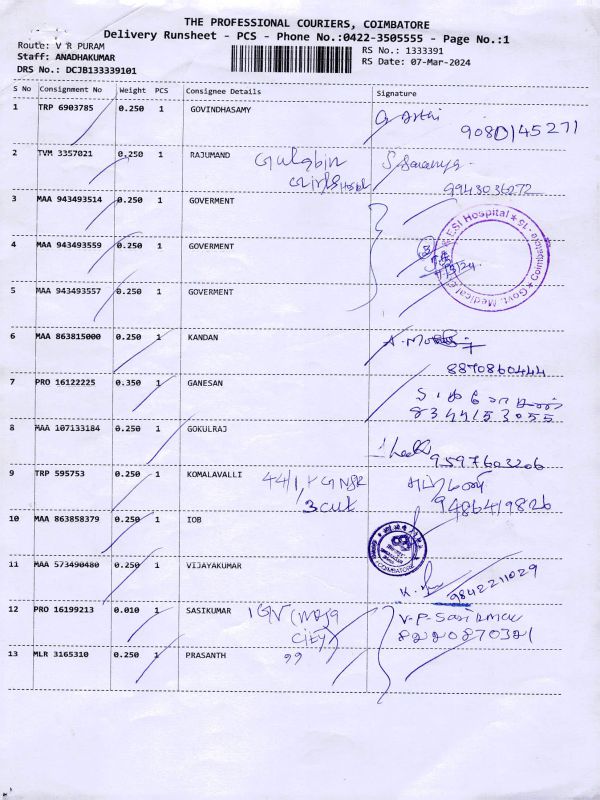 THE PROFESSIONAL COURIERS, COIMBATORE
Delivery Runsheet - PCS - Phone No.:0422-3505555 - Page No.:1
Route: V R PURAM
Staff: ANADHAKUMAR
DRS No.: DCJB133339101
RS No.: 1333391
RS Date: 07-Mar-2024
S No Consignment No Weight PCS Consignee Details Signature
1 TRP 6903785 0.250 1 GOVINDHASAMY
9080145271
2 TVM 3357021 0.250 1 RAJUMAND
9943036272
3 MAA 943493514 0.250 1 GOVERMENT
ESI Hospital * Coimbatore - 15 * Govt. Medical
4 MAA 943493559 0.250 1 GOVERMENT
5 MAA 943493557 0.250 1 GOVERMENT
6 MAA 863815000 0.250 1 KANDAN
8870860444
7 PRO 16122225 0.350 1 GANESAN
8344153055
8 MAA 107133184 0.250 1 GOKULRAJ
9597603206
9 TRP 595753 0.250 1 KOMALAVALLI
9486419826
10 MAA 863858379 0.250 1 IOB
COIMBATORE
11 MAA 573490480 0.250 1 VIJAYAKUMAR
9842211029
12 PRO 16199213 0.010 1 SASIKUMAR
V.P. Sasikumar
8220870321
13 MLR 3165310 0.250 1 PRASANTH